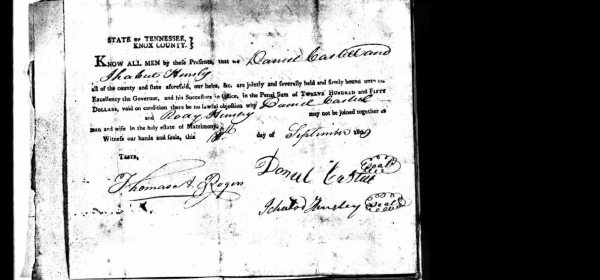 STATE OF TENNESSEE,
KNOX COUNTY.
KNOW ALL MEN by these Presents, that we Daniel Casteel and
Ihabut Hensly
all of the county and state aforesaid, our heirs, &c. are jointly and severally held and firmly bound unto
Excellency the Governor, and his Successors in Office, in the Penal Sum of TWELVE HUNDRED AND FIFTY
DOLLARS, void on condition there be no lawful objection why Daniel Casteel
and Hensly may not be joined together as
man and wife in the holy estate of Matrimony.
Witness our hands and seals, this day of September
TESTE,
Thomas A. Rogers
Daniel Casteel Seal
Ichabod Hensley Seal